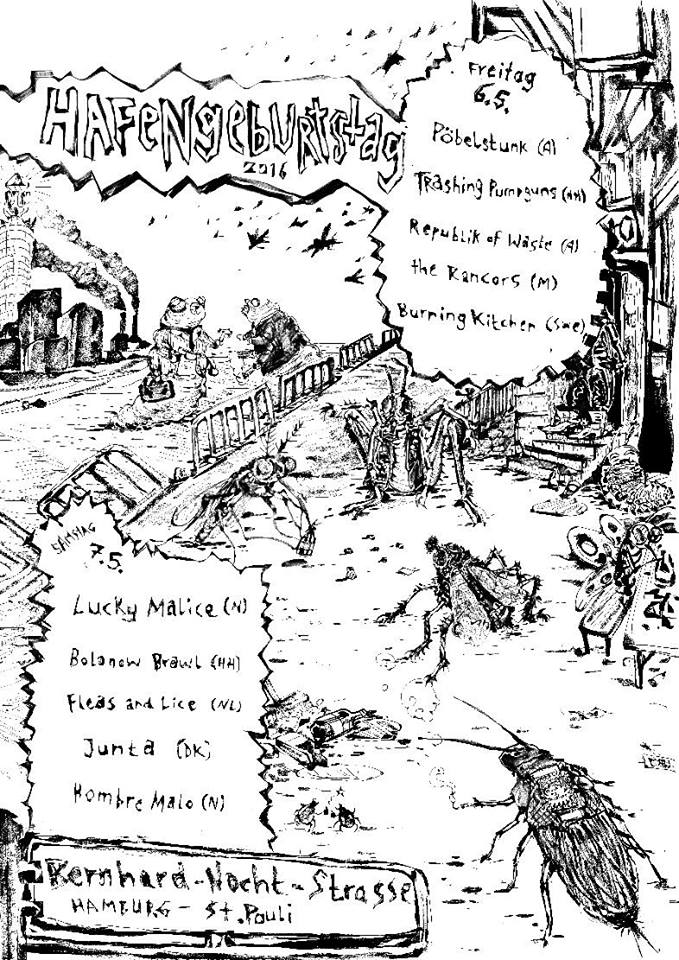 HAFENGEBURTSTAG
2016
Freitag
6.5.
Pöbelstunk (A)
Trashing Pumpguns (HH)
Republik of Waste (A)
the Rancors (M)
Burning Kitchen (Swe)
SAMSTAG
7.5.
Lucky Malice (N)
Bolanow Brawl (HH)
Fleas and Lice (NL)
Junta (DK)
Hombre Malo (N)
Bernhard-Nocht-Strasse
HAMBURG - St. Pauli